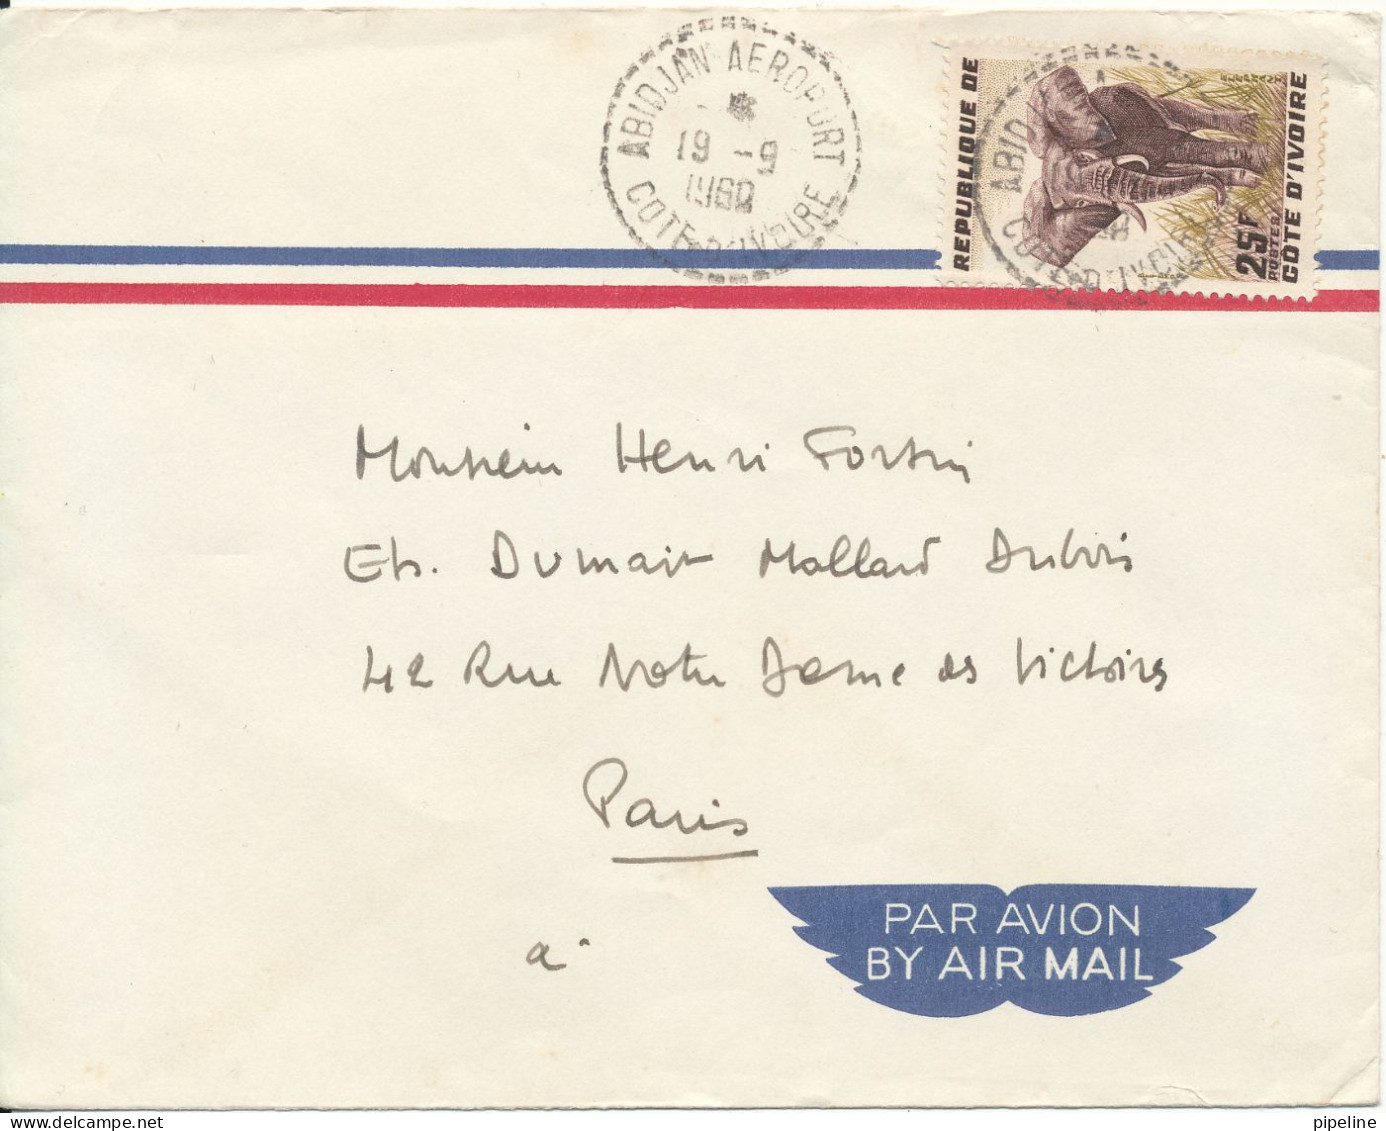 ABIDJAN AEROPORT
19 -9
1960
COTE D'IVOIRE
REPUBLIQUE DE
25F
POSTES
CÔTE D'IVOIRE
ABIDJ
COTE D'IVOIRE
Monsieur Henri Fortin
Ets. Dumait Mallard Dubois
42 Rue Notre Dame des Victoires
Paris
a
PAR AVION
BY AIR MAIL
pipeline